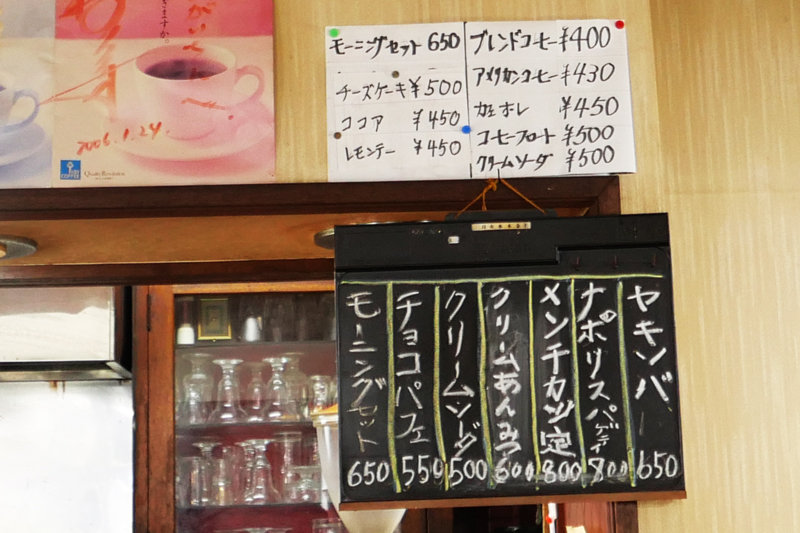 2006.1.24.
COFFEE
モーニングセット 650
チーズケーキ ¥500
ココア ¥450
レモンテー ¥450
ブレンドコーヒー ¥400
アメリカンコーヒー ¥430
カフェオレ ¥450
コーヒーフロート ¥500
クリームソーダ ¥500
ヤキソバ 650
ナポリスパゲティ 800
メンチカツ定 800
クリームあんみつ 600
クリームソーダ 500
チョコパフェ 550
モーニングセット 650